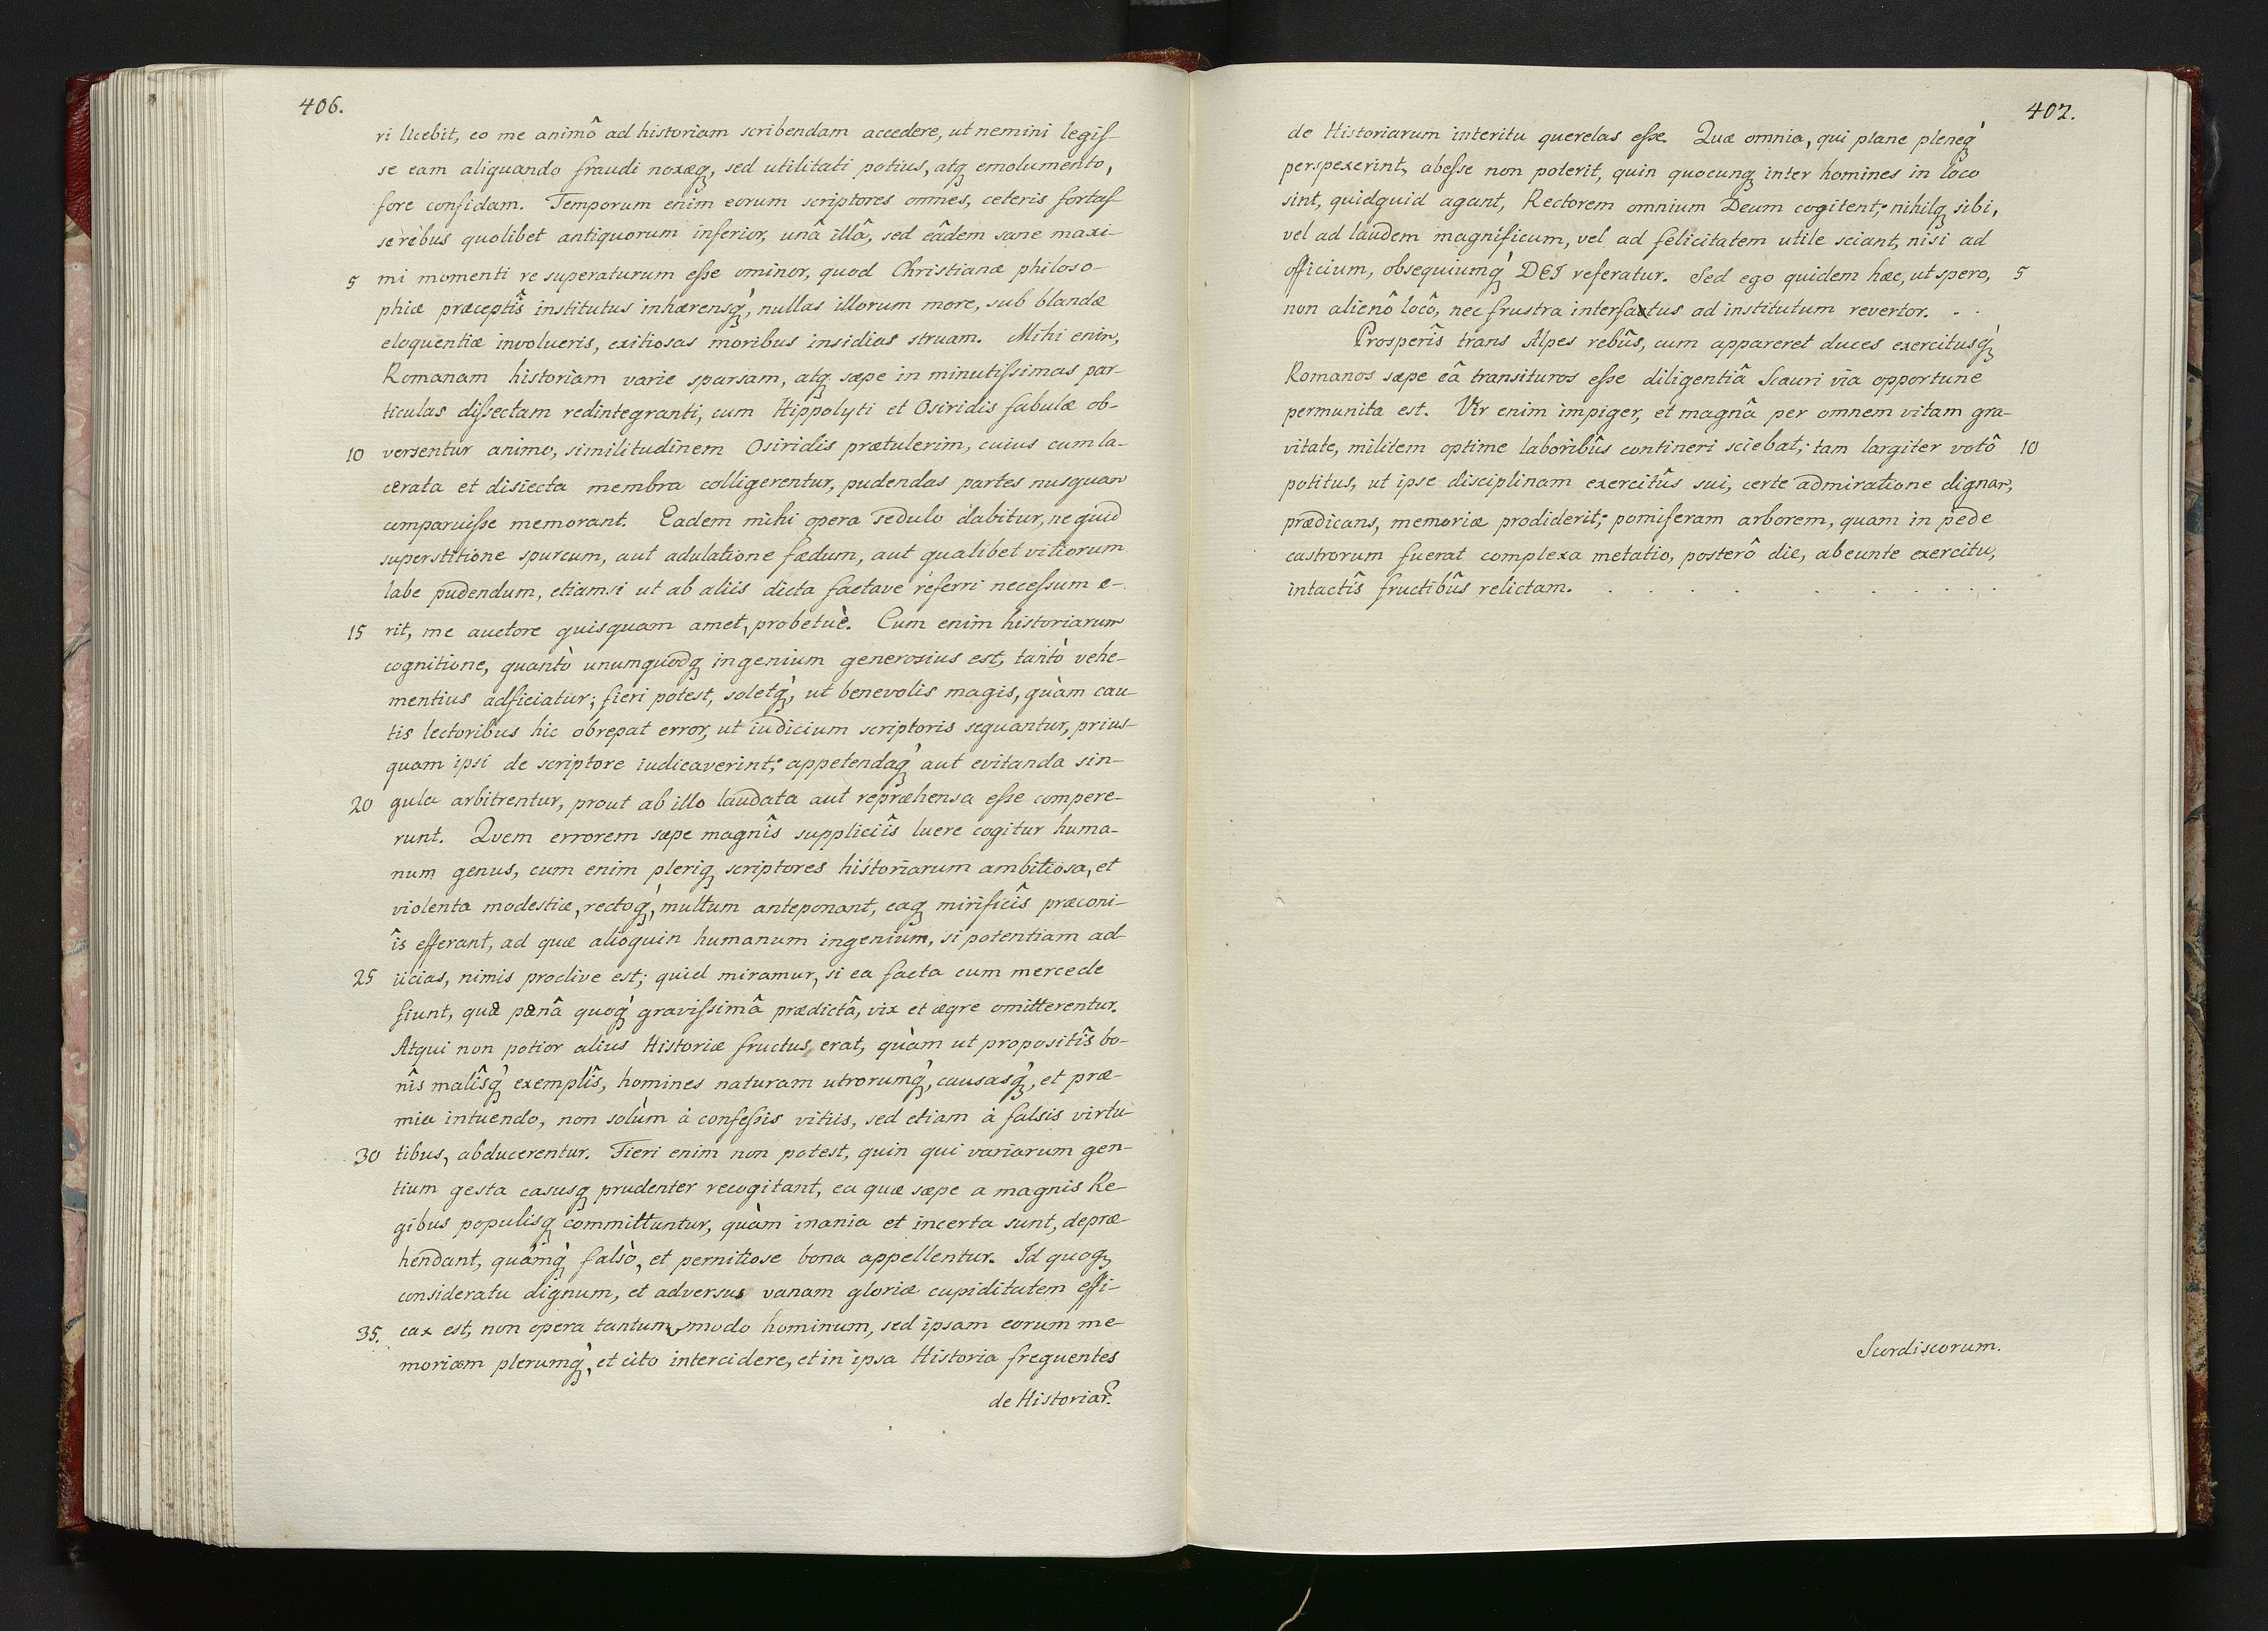 406.
ri licebit, eo me animô ad historiam scribendam accedere, ut nemini legis-
se eam aliquando fraudi noxæq́;, sed utilitati potius, atq; emolumento,
fore confidam. Temporum enim eorum scriptores omnes, ceteris fortas-
se rebus quolibet antiquorum inferior, unâ illâ, sed eâdem sane maxi-
5 mi momenti re superaturum esse ominor, quod Christianæ philoso-
phiæ præceptîs institutus inhærensq́;, nullas illorum more, sub blandæ
eloquentiæ involucris, exitiosas moribus insidias struam. Mihi enim,
Romanam historiam varie sparsam, atq; sæpe in minutissimas par-
ticulas dissectam redintegranti, cum Hippolyti et Osiridis fabulæ ob-
10 versentur animo, similitudinem Osiridis prætulerim, cuius cum la-
cerata et disiecta membra colligerentur, pudendas partes nusquam
comparuisse memorant. Eadem mihi opera sedulo dabitur, ne quid
superstitione spurcum, aut adulatione fædum, aut qualibet vitiorum
labe pudendum, etiamsi ut ab aliis dicta factave referri necessum e-
15 rit, me auctore quisquam amet, probetuè. Cum enim historiarum
cognitione, quantò unumquodq; ingenium generosius est, tantò vehe-
mentius adficiatur; fieri potest, soletq́;, ut benevolis magis, quàm cau-
tis lectoribus hic obrepat error, ut iudicium scriptoris sequantur, prius-
quam ipsi de scriptore iudicaverint; appetendaq́; aut evitanda sin-
20 gula arbitrentur, prout ab illo laudata aut repræhensa esse compere-
runt. Quem errorem sæpe magnîs suppliciîs luere cogitur huma-
num genus, cum enim pleriq; scriptores historiarum ambitiosa, et
violenta modestiæ, rectoq́;, multum anteponant, eaq; mirificîs præconi-
îs efferant, ad quæ alioquin humanum ingenium, si potentiam ad-
25 iicias, nimis proclive est; quid miramur, si ea facta cum mercede
fiunt, quæ pænâ quoq́; gravissimâ prædictâ, vix et ægre omitterentur.
Atqui non potior alius Historiæ fructus erat, quàm ut propositîs bo-
nîs malîsq́; exemplîs, homines naturam utrorumq́;, causasq́;, et præ-
mia intuendo, non solùm à confessis vitiis, sed etiam à falsis virtu-
30 tibus, abducerentur. Fieri enim non potest, quin qui variarum gen-
tium gesta casusq; prudenter recogitant, ea quæ sæpe a magnis Re-
gibus populisq; committuntur, quàm inania et incerta sunt, depræ-
hendant, quàmq́; falsò, et pernitiose bona appellentur. Id quoq;
consideratu dignum, et adversus vanam gloriæ cupiditatem effi-
35. cax est, non opera tantummodo hominum, sed ipsam eorum me-
moriam plerumq́;, et cito intercidere, et in ipsa Historia frequentes
de Historiar.
407.
de Historiarum interitu querelas esse. Quæ omnia, qui plane pleneq́;
perspexerint, abesse non poterit, quin quocunq; inter homines in loco
sint, quidquid agant, Rectorem omnium Deum cogitent; nihilq; sibi,
vel ad laudem magnificum, vel ad felicitatem utile sciant, nisi ad
officium, obsequiumq́; DEI referatur. Sed ego quidem hæc, ut spero, 5
non alienô locô, nec frustra interfatus ad institutum revertor. . .
Prosperîs trans Alpes rebûs, cum appareret duces exercitusq́;
Romanos sæpe eâ transituros esse diligentiâ Scauri via opportune
permunita est. Vir enim impiger, et magnâ per omnem vitam gra-
vitate, militem optime laboribûs contineri sciebat; tam largiter votô 10
potitus, ut ipse disciplinam exercitûs sui, certe admiratione dignam,
prædicans, memoriæ prodiderit; pomiferam arborem, quam in pede
castrorum fuerat complexa metatio, posterô die, abeunte exercitu,
intactîs fructibûs relictam. . . . . . . . . . .
Scordiscorum.